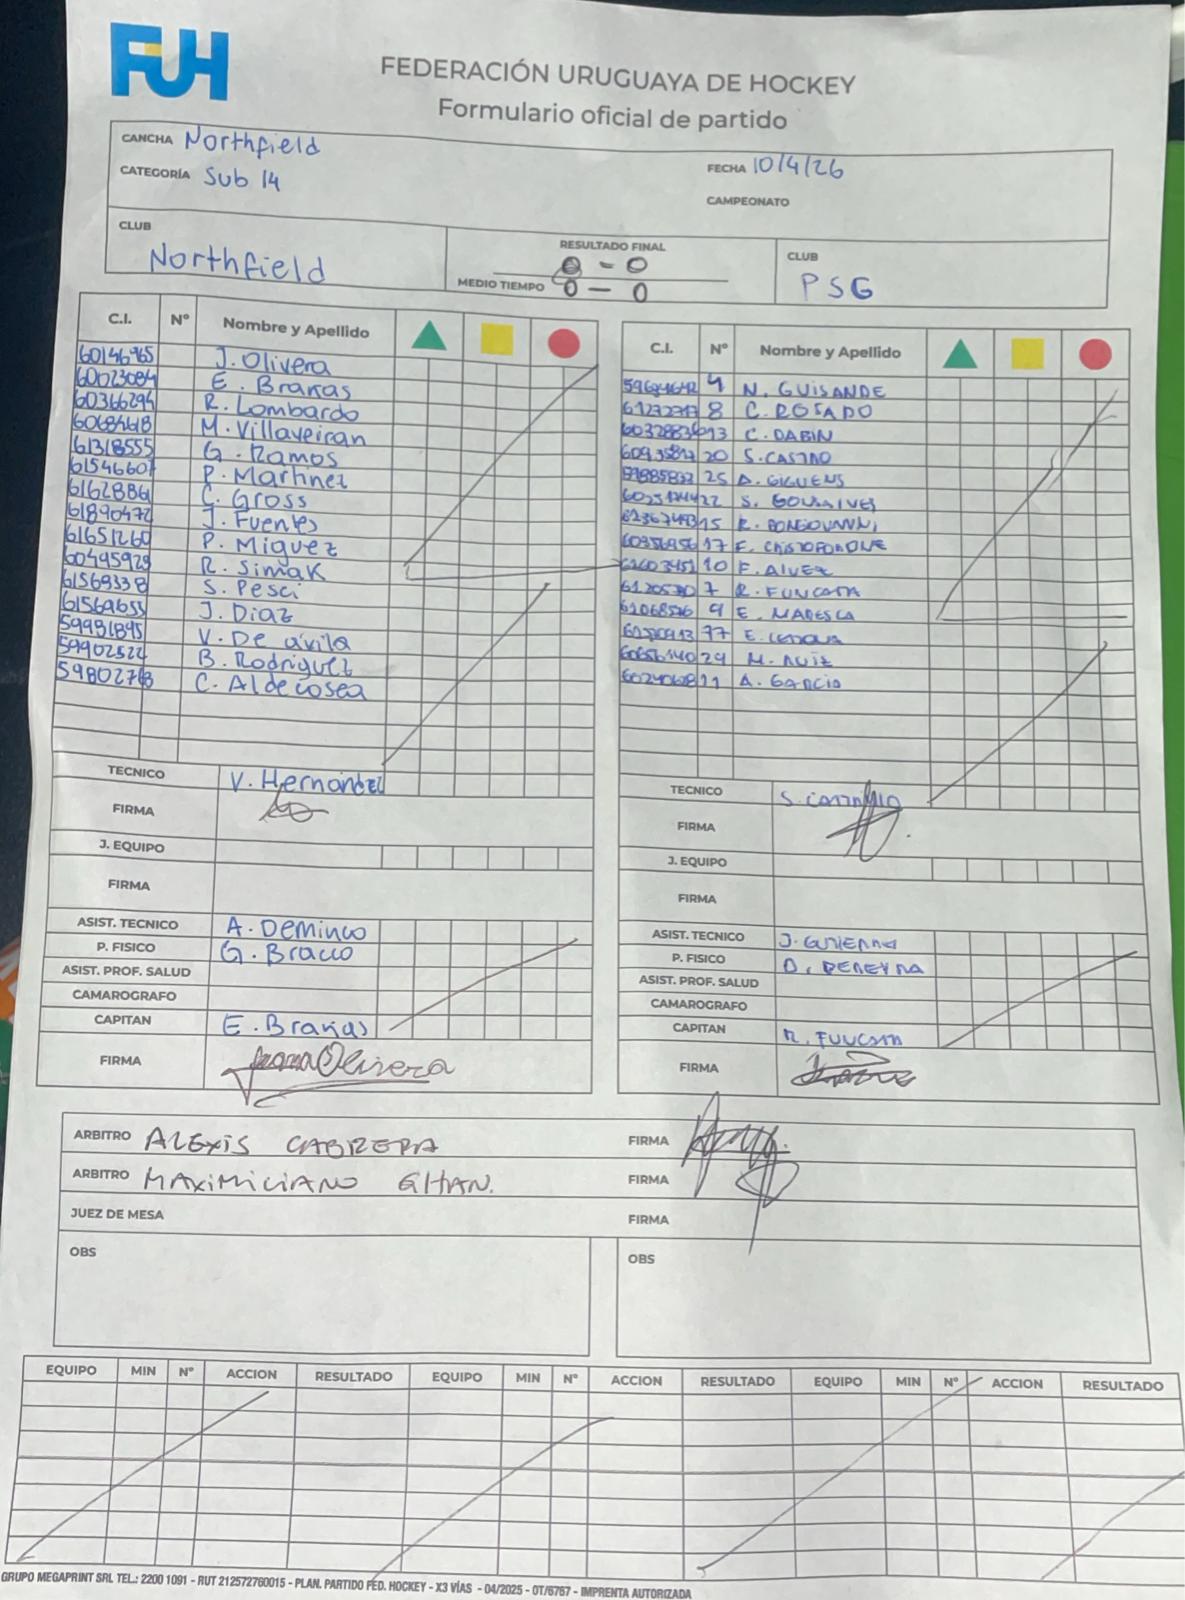 FUH
FEDERACIÓN URUGUAYA DE HOCKEY
Formulario oficial de partido
CANCHA Northfield
FECHA 10/4/26
CATEGORÍA Sub 14
CAMPEONATO
CLUB Northfield
RESULTADO FINAL 0-0
MEDIO TIEMPO 0-0
CLUB PSG
C.I. Nº Nombre y Apellido
60146965 J. Olivera
60023084 E. Brañas
60366294 R. Lombardo
60684618 M. Villaveiran
61318555 G. Ramos
61546607 P. Martinez
6162886 C. Gross
61890472 J. Fuentes
61651260 P. Miguez
60495929 R. Simak
61569338 S. Pesci
61569655 J. Diaz
59931895 V. De avila
59902522 B. Rodriguez
59802763 C. Aldecosea
TECNICO V. Hernandez
FIRMA
J. EQUIPO
FIRMA
ASIST. TECNICO A. Deminco
P. FISICO G. Bracco
ASIST. PROF. SALUD
CAMAROGRAFO
CAPITAN E. Brañas
FIRMA Joana Olivera
C.I. Nº Nombre y Apellido
4 N. GUISANDE
8 C. ROSADO
13 C. DABIN
20 S. CASTRO
25 A. GIGUENS
22 S. GONSALVES
15 R. BONGIOVANNI
17 F. CRISTOFORONE
10 F. ALVEZ
7 R. FUNCASTA
9 E. MARESCA
77 E.
24 M. RUIZ
11 A. GARCIA
TECNICO S.
FIRMA
J. EQUIPO
FIRMA
ASIST. TECNICO J.
P. FISICO D. PEREYRA
ASIST. PROF. SALUD
CAMAROGRAFO
CAPITAN R. FUNCASTA
FIRMA
ARBITRO ALEXIS CABRERA FIRMA
ARBITRO MAXIMILIANO GHAN. FIRMA
JUEZ DE MESA FIRMA
OBS OBS
EQUIPO MIN Nº ACCION RESULTADO EQUIPO MIN Nº ACCION RESULTADO EQUIPO MIN Nº ACCION RESULTADO
GRUPO MEGAPRINT SRL TEL.: 2200 1091 - RUT 212572760015 - PLAN. PARTIDO FED. HOCKEY - X3 VÍAS - 04/2025 - OT/6767 - IMPRENTA AUTORIZADA